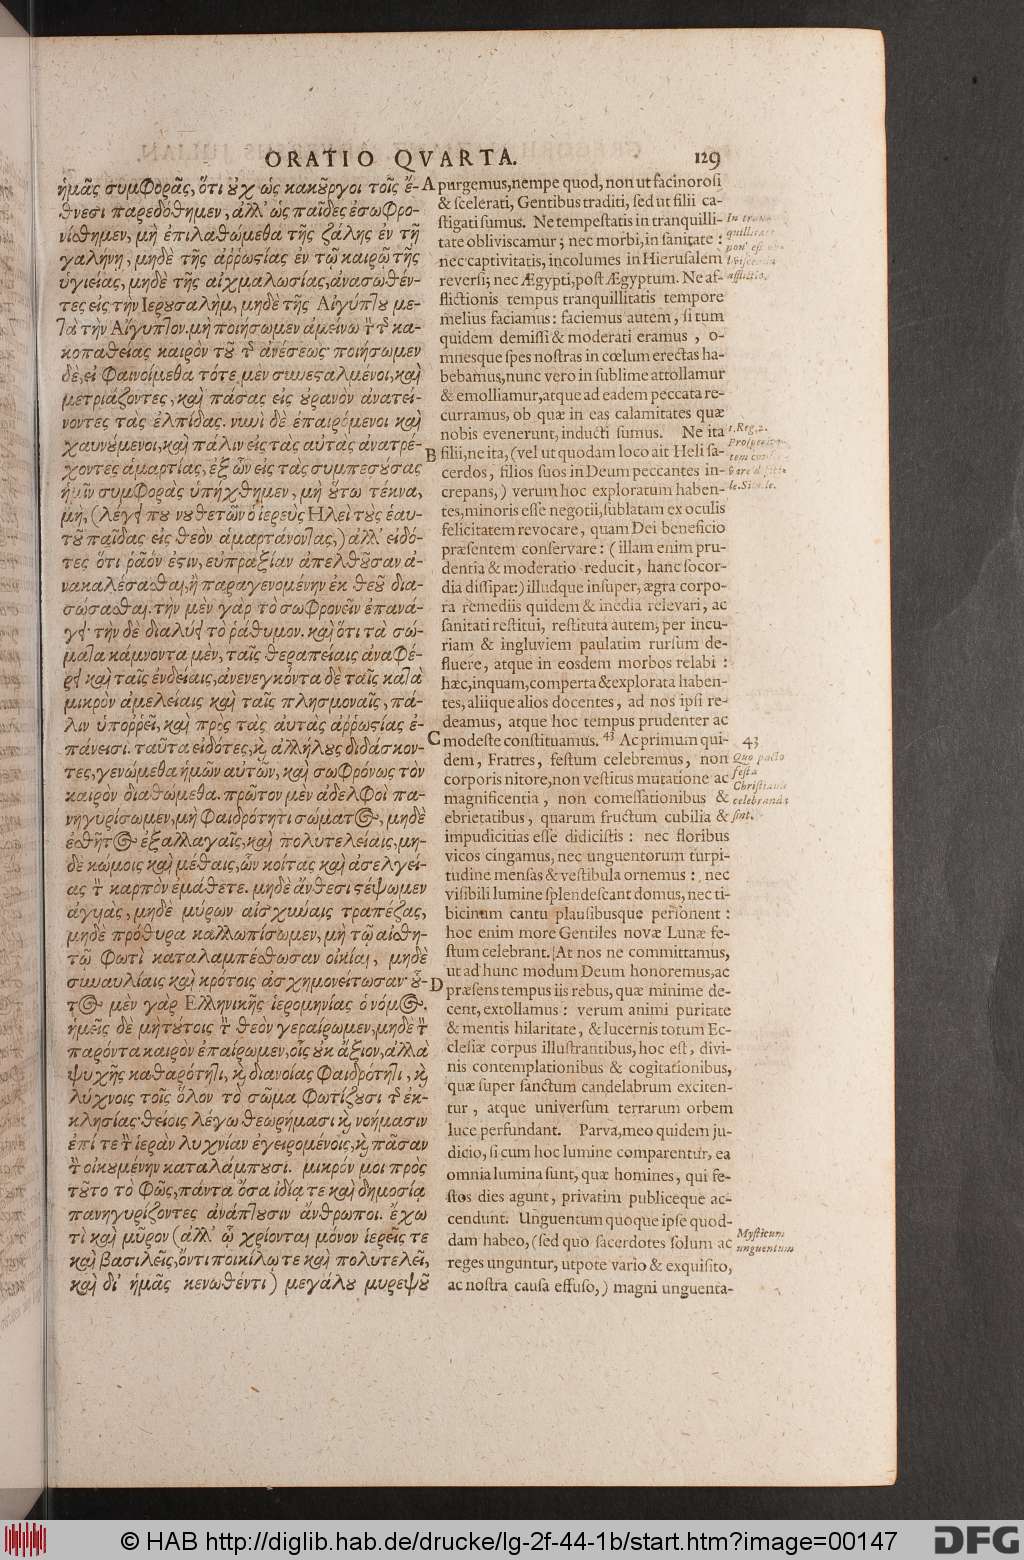 ORATIO QVARTA.
129
ἡμᾶς συμφορᾶς, ὅτι οὐχ ὡς κακοῦργοι τοῖς ἔ-
θνεσι παρεδόθημεν, ἀλλ' ὡς παῖδες ἐσωφρο-
νίσθημεν, μὴ ἐπιλαθώμεθα τῆς ζάλης ἐν τῇ
γαλήνῃ, μηδὲ τῆς ἀῤῥωστίας ἐν τῷ καιρῷ τῆς
ὑγιείας, μηδὲ τῆς αἰχμαλωσίας, ἀνασωθέν-
τες εἰς τὴν Ιερουσαλὴμ, μηδὲ τῆς Αἰγύπτου με-
τὰ τὴν Αἴγυπτον. μὴ ποιήσωμεν ἀμείνω τὸν τῆς κα-
κοπαθείας καιρὸν τοῦ τῆς ἀνέσεως· ποιήσωμεν
δὲ, εἰ φαινοίμεθα τότε μὲν συνεσταλμένοι, καὶ
μετριάζοντες, καὶ πάσας εἰς οὐρανὸν ἀνατεί-
νοντες τὰς ἐλπίδας. νυνὶ δὲ ἐπαιρόμενοι καὶ
χαυνούμενοι, καὶ πάλιν εἰς τὰς αὐτὰς ἀνατρέ-
χοντες ἁμαρτίας, ἐξ ὧν εἰς τὰς συμπεσούσας
ἡμῖν συμφορὰς ὑπήχθημεν, μὴ οὕτω τέκνα,
μὴ, (λέγει που νουθετῶν ὁ ἱερεὺς Ηλεὶ τοὺς ἑαυ-
τοῦ παῖδας εἰς θεὸν ἁμαρτάνοντας,) ἀλλ' εἰδό-
τες ὅτι ῥᾷόν ἐστιν, εὐπραξίαν ἀπελθοῦσαν ἀ-
νακαλέσασθαι, ἢ παραγενομένην ἐκ θεοῦ δια-
σώσασθαι. τὴν μὲν γὰρ τὸ σωφρονεῖν ἐπανά-
γει· τὴν δὲ διαλύει τὸ ῥάθυμον. καὶ ὅτι τὰ σώ-
ματα κάμνοντα μὲν, ταῖς θεραπείαις ἀναφέ-
ρει καὶ ταῖς ἐνδείαις, ἀνενεγκόντα δὲ ταῖς κατὰ
μικρὸν ἀμελείαις καὶ ταῖς πλησμοναῖς, πά-
λιν ὑποῤῥεῖ, καὶ πρὸς τὰς αὐτὰς ἀῤῥωστίας ἐ-
πάνεισι. ταῦτα εἰδότες, καὶ ἀλλήλους διδάσκον-
τες, γενώμεθα ἡμῶν αὐτῶν, καὶ σωφρόνως τὸν
καιρὸν διαθώμεθα. πρῶτον μὲν ἀδελφοὶ πα-
νηγυρίσωμεν, μὴ φαιδρότητι σώματος, μηδὲ
ἐσθῆτος ἐξαλλαγαῖς, καὶ πολυτελείαις, μη-
δὲ κώμοις καὶ μέθαις, ὧν κοίτας καὶ ἀσελγεί-
ας τὸν καρπὸν ἐμάθετε. μηδὲ ἄνθεσι στέψωμεν
ἀγυιὰς, μηδὲ μύρων αἰσχύναις τραπέζας,
μηδὲ πρόθυρα καλλωπίσωμεν, μὴ τῷ αἰσθη-
τῷ φωτὶ καταλαμπέσθωσαν οἰκίαι, μηδὲ
συναυλίαις καὶ κρότοις ἀσχημονείτωσαν· οὗ-
τος μὲν γὰρ Ελληνικῆς ἱερομηνίας ὁ νόμος.
ἡμεῖς δὲ μὴ τούτοις τὸν θεὸν γεραίρωμεν, μηδὲ τὸν
παρόντα καιρὸν ἐπαίρωμεν, οἷς οὐκ ἄξιον, ἀλλὰ
ψυχῆς καθαρότητι, καὶ διανοίας φαιδρότητι, καὶ
λύχνοις τοῖς ὅλον τὸ σῶμα φωτίζουσι τῆς ἐκ-
κλησίας· θείοις λέγω θεωρήμασι καὶ νοήμασιν
ἐπί τε τὴν ἱερὰν λυχνίαν ἐγειρομένοις, καὶ πᾶσαν
τὴν οἰκουμένην καταλάμπουσι. μικρόν μοι πρὸς
τοῦτο τὸ φῶς, πάντα ὅσα ἰδίᾳ τε καὶ δημοσίᾳ
πανηγυρίζοντες ἀνάπτουσιν ἄνθρωποι. ἔχω
τὶ καὶ μῦρον (ἀλλ' ᾧ χρίονται μόνον ἱερεῖς τε
καὶ βασιλεῖς, ὄντι ποικίλῳ τε καὶ πολυτελεῖ,
καὶ δι' ἡμᾶς κενωθέντι) μεγάλου μυρεψοῦ
A purgemus, nempe quod, non ut facinorosi
& scelerati, Gentibus traditi, sed ut filii ca-
stigati sumus. Ne tempestatis in tranquilli-
tate obliviscamur; nec morbi, in sanitate:
nec captivitatis, incolumes in Hierusalem
reversi; nec Ægypti, post Ægyptum. Ne af-
flictionis tempus tranquillitatis tempore
melius faciamus: faciemus autem, si tum
quidem demissi & moderati eramus, o-
mnesque spes nostras in cœlum erectas ha-
bebamus, nunc vero in sublime attollamur
& emolliamur, atque ad eadem peccata re-
curramus, ob quæ in eas calamitates quæ
nobis evenerunt, inducti sumus. Ne ita
B filii, ne ita, (vel ut quodam loco ait Heli sa-
cerdos, filios suos in Deum peccantes in-
crepans,) verum hoc exploratum haben-
tes, minoris esse negotii, sublatam ex oculis
felicitatem revocare, quam Dei beneficio
præsentem conservare: (illam enim pru-
dentia & moderatio reducit, hanc socor-
dia dissipat:) illudque insuper, ægra corpo-
ra remediis quidem & inedia relevari, ac
sanitati restitui, restituta autem, per incu-
riam & ingluviem paulatim rursum de-
fluere, atque in eosdem morbos relabi:
hæc, inquam, comperta & explorata haben-
tes, aliique alios docentes, ad nos ipsi re-
deamus, atque hoc tempus prudenter ac
C modeste constituamus. 43 Ac primum qui-
dem, Fratres, festum celebremus, non
corporis nitore, non vestitus mutatione ac
magnificentia, non comessationibus &
ebrietatibus, quarum fructum cubilia &
impudicitias esse didicistis: nec floribus
vicos cingamus, nec unguentorum turpi-
tudine mensas & vestibula ornemus: nec
visibili lumine splendescant domus, nec ti-
bicinum cantu plausibusque personent:
hoc enim more Gentiles novæ Lunæ fe-
stum celebrant. At nos ne committamus,
ut ad hunc modum Deum honoremus, ac
D præsens tempus iis rebus, quæ minime de-
cent, extollamus: verum animi puritate
& mentis hilaritate, & lucernis totum Ec-
clesiæ corpus illustrantibus, hoc est, divi-
nis contemplationibus & cogitationibus,
quæ super sanctum candelabrum exciten-
tur, atque universum terrarum orbem
luce perfundant. Parva, meo quidem ju-
dicio, si cum hoc lumine comparentur, ea
omnia lumina sunt, quæ homines, qui fe-
stos dies agunt, privatim publiceque ac-
cendunt. Unguentum quoque ipse quod-
dam habeo, (sed quo sacerdotes solum ac
reges unguntur, utpote vario & exquisito,
ac nostra causa effuso,) magni unguenta-
In tran-
quillitate
non est ob-
liviscenda
afflictio.
1. Reg. 2.
43
Quo pacto
festa
Christianis
celebranda
sint.
Mysticum
unguentum
© HAB http://diglib.hab.de/drucke/lg-2f-44-1b/start.htm?image=00147
DFG